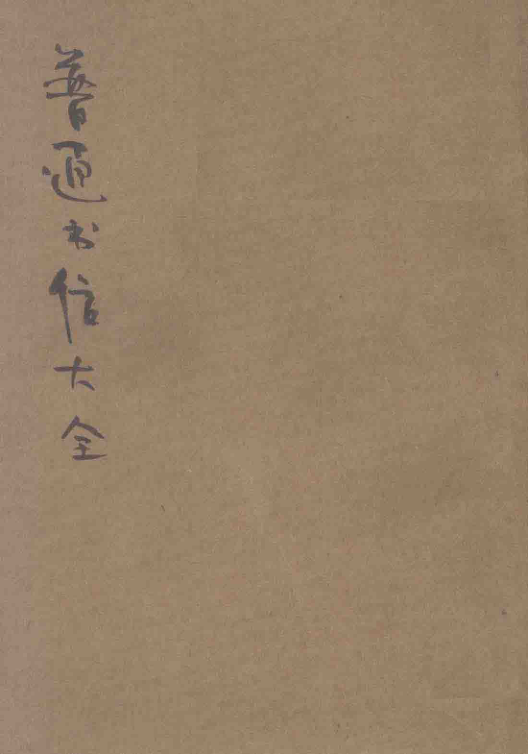 普通书信大全